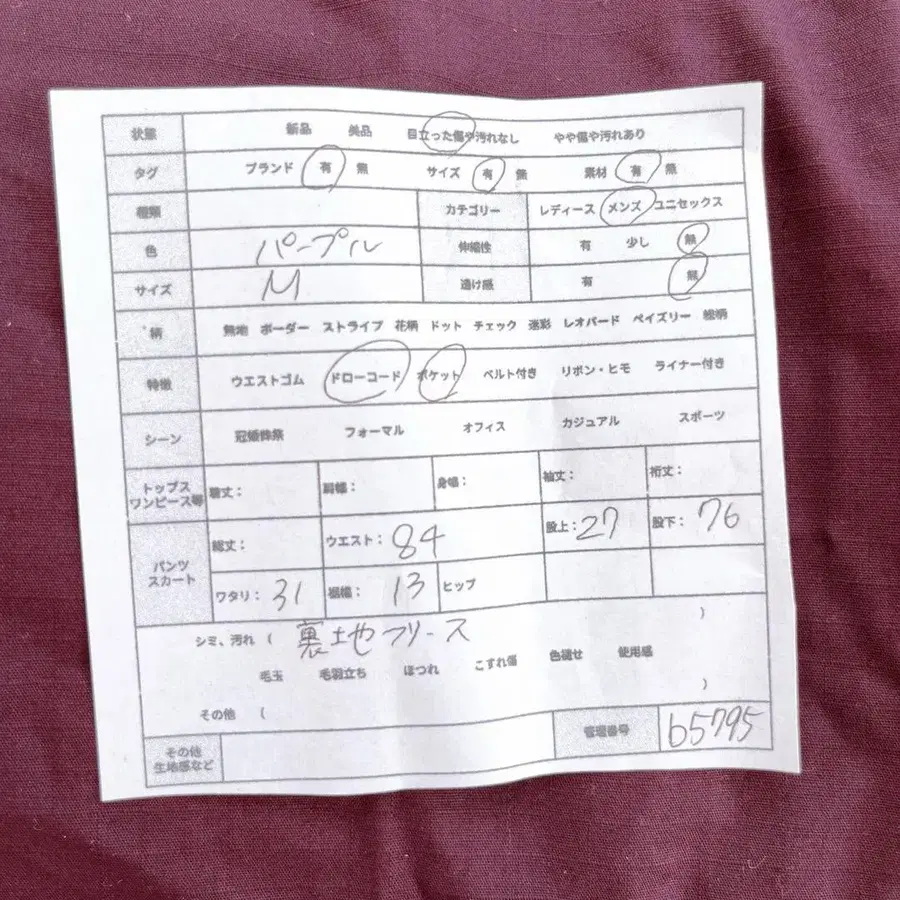 状態 新品 美品 目立った傷や汚れなし やや傷や汚れあり
タグ ブランド 有 無 サイズ 有 無 素材 有 無
種類 カテゴリー レディース メンズ ユニセックス
色 パープル 伸縮性 有 少し 無
サイズ M 透け感 有 無
柄 無地 ボーダー ストライプ 花柄 ドット チェック 迷彩 レオパード ペイズリー 総柄
特徴 ウエストゴム ドローコード ポケット ベルト付き リボン・ヒモ ライナー付き
シーン 冠婚葬祭 フォーマル オフィス カジュアル スポーツ
トップス
ワンピース等 着丈: 肩幅: 身幅: 袖丈: 裄丈:
パンツ
スカート 総丈: ウエスト: 84 股上: 27 股下: 76
ワタリ: 31 裾幅: 13 ヒップ
シミ、汚れ ( 裏地フリース )
毛玉 毛羽立ち ほつれ こすれ傷 色褪せ 使用感
その他 ( )
その他
生地感など 管理番号 b5795